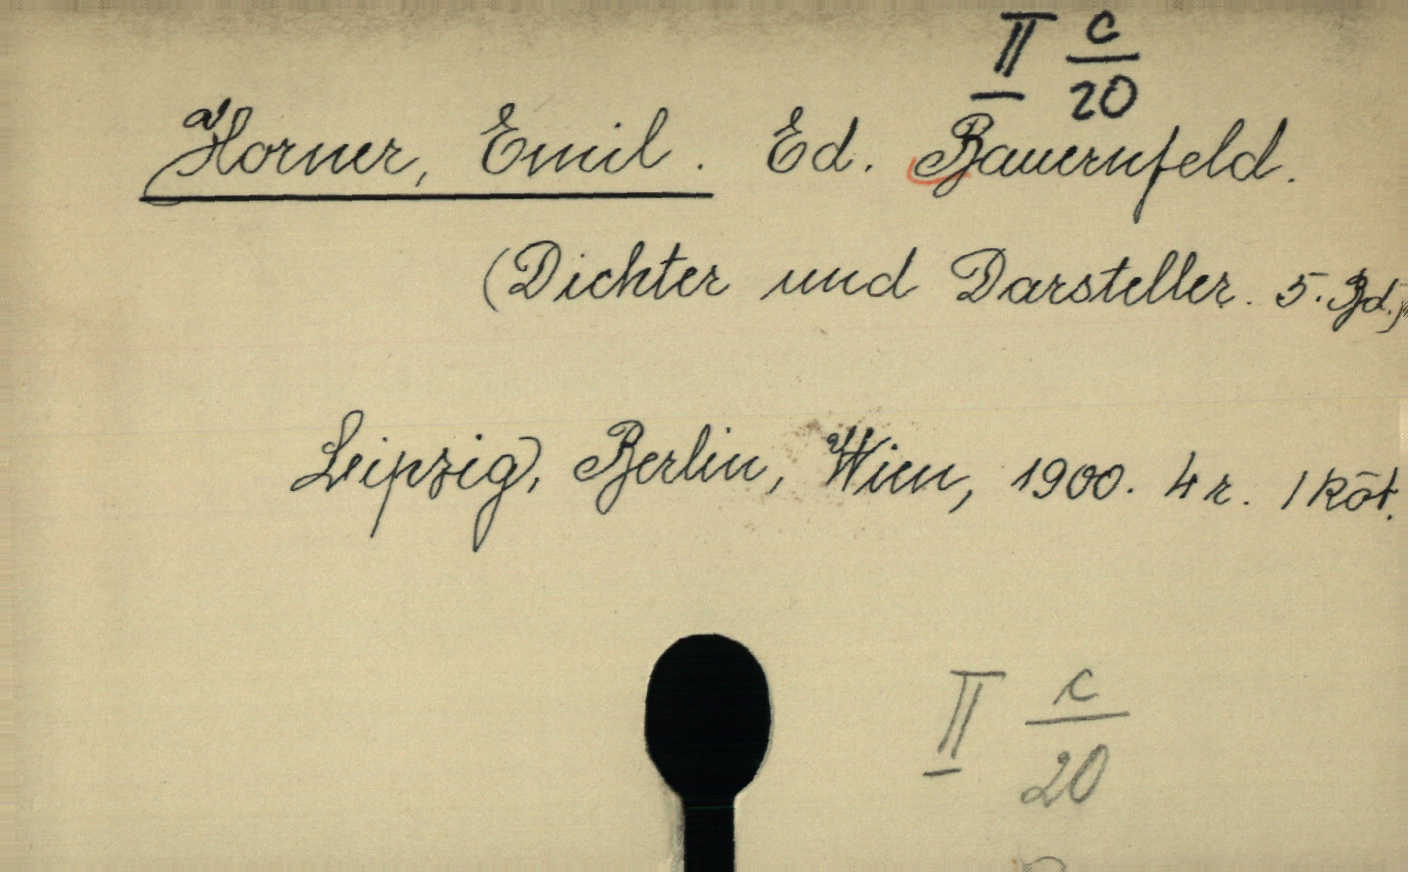 II c/20
Horner, Emil. Ed. Bauernfeld.
(Dichter und Darsteller. 5. Bd.)
Leipzig, Berlin, Wien, 1900. 4 r. 1 köt.
II c/20